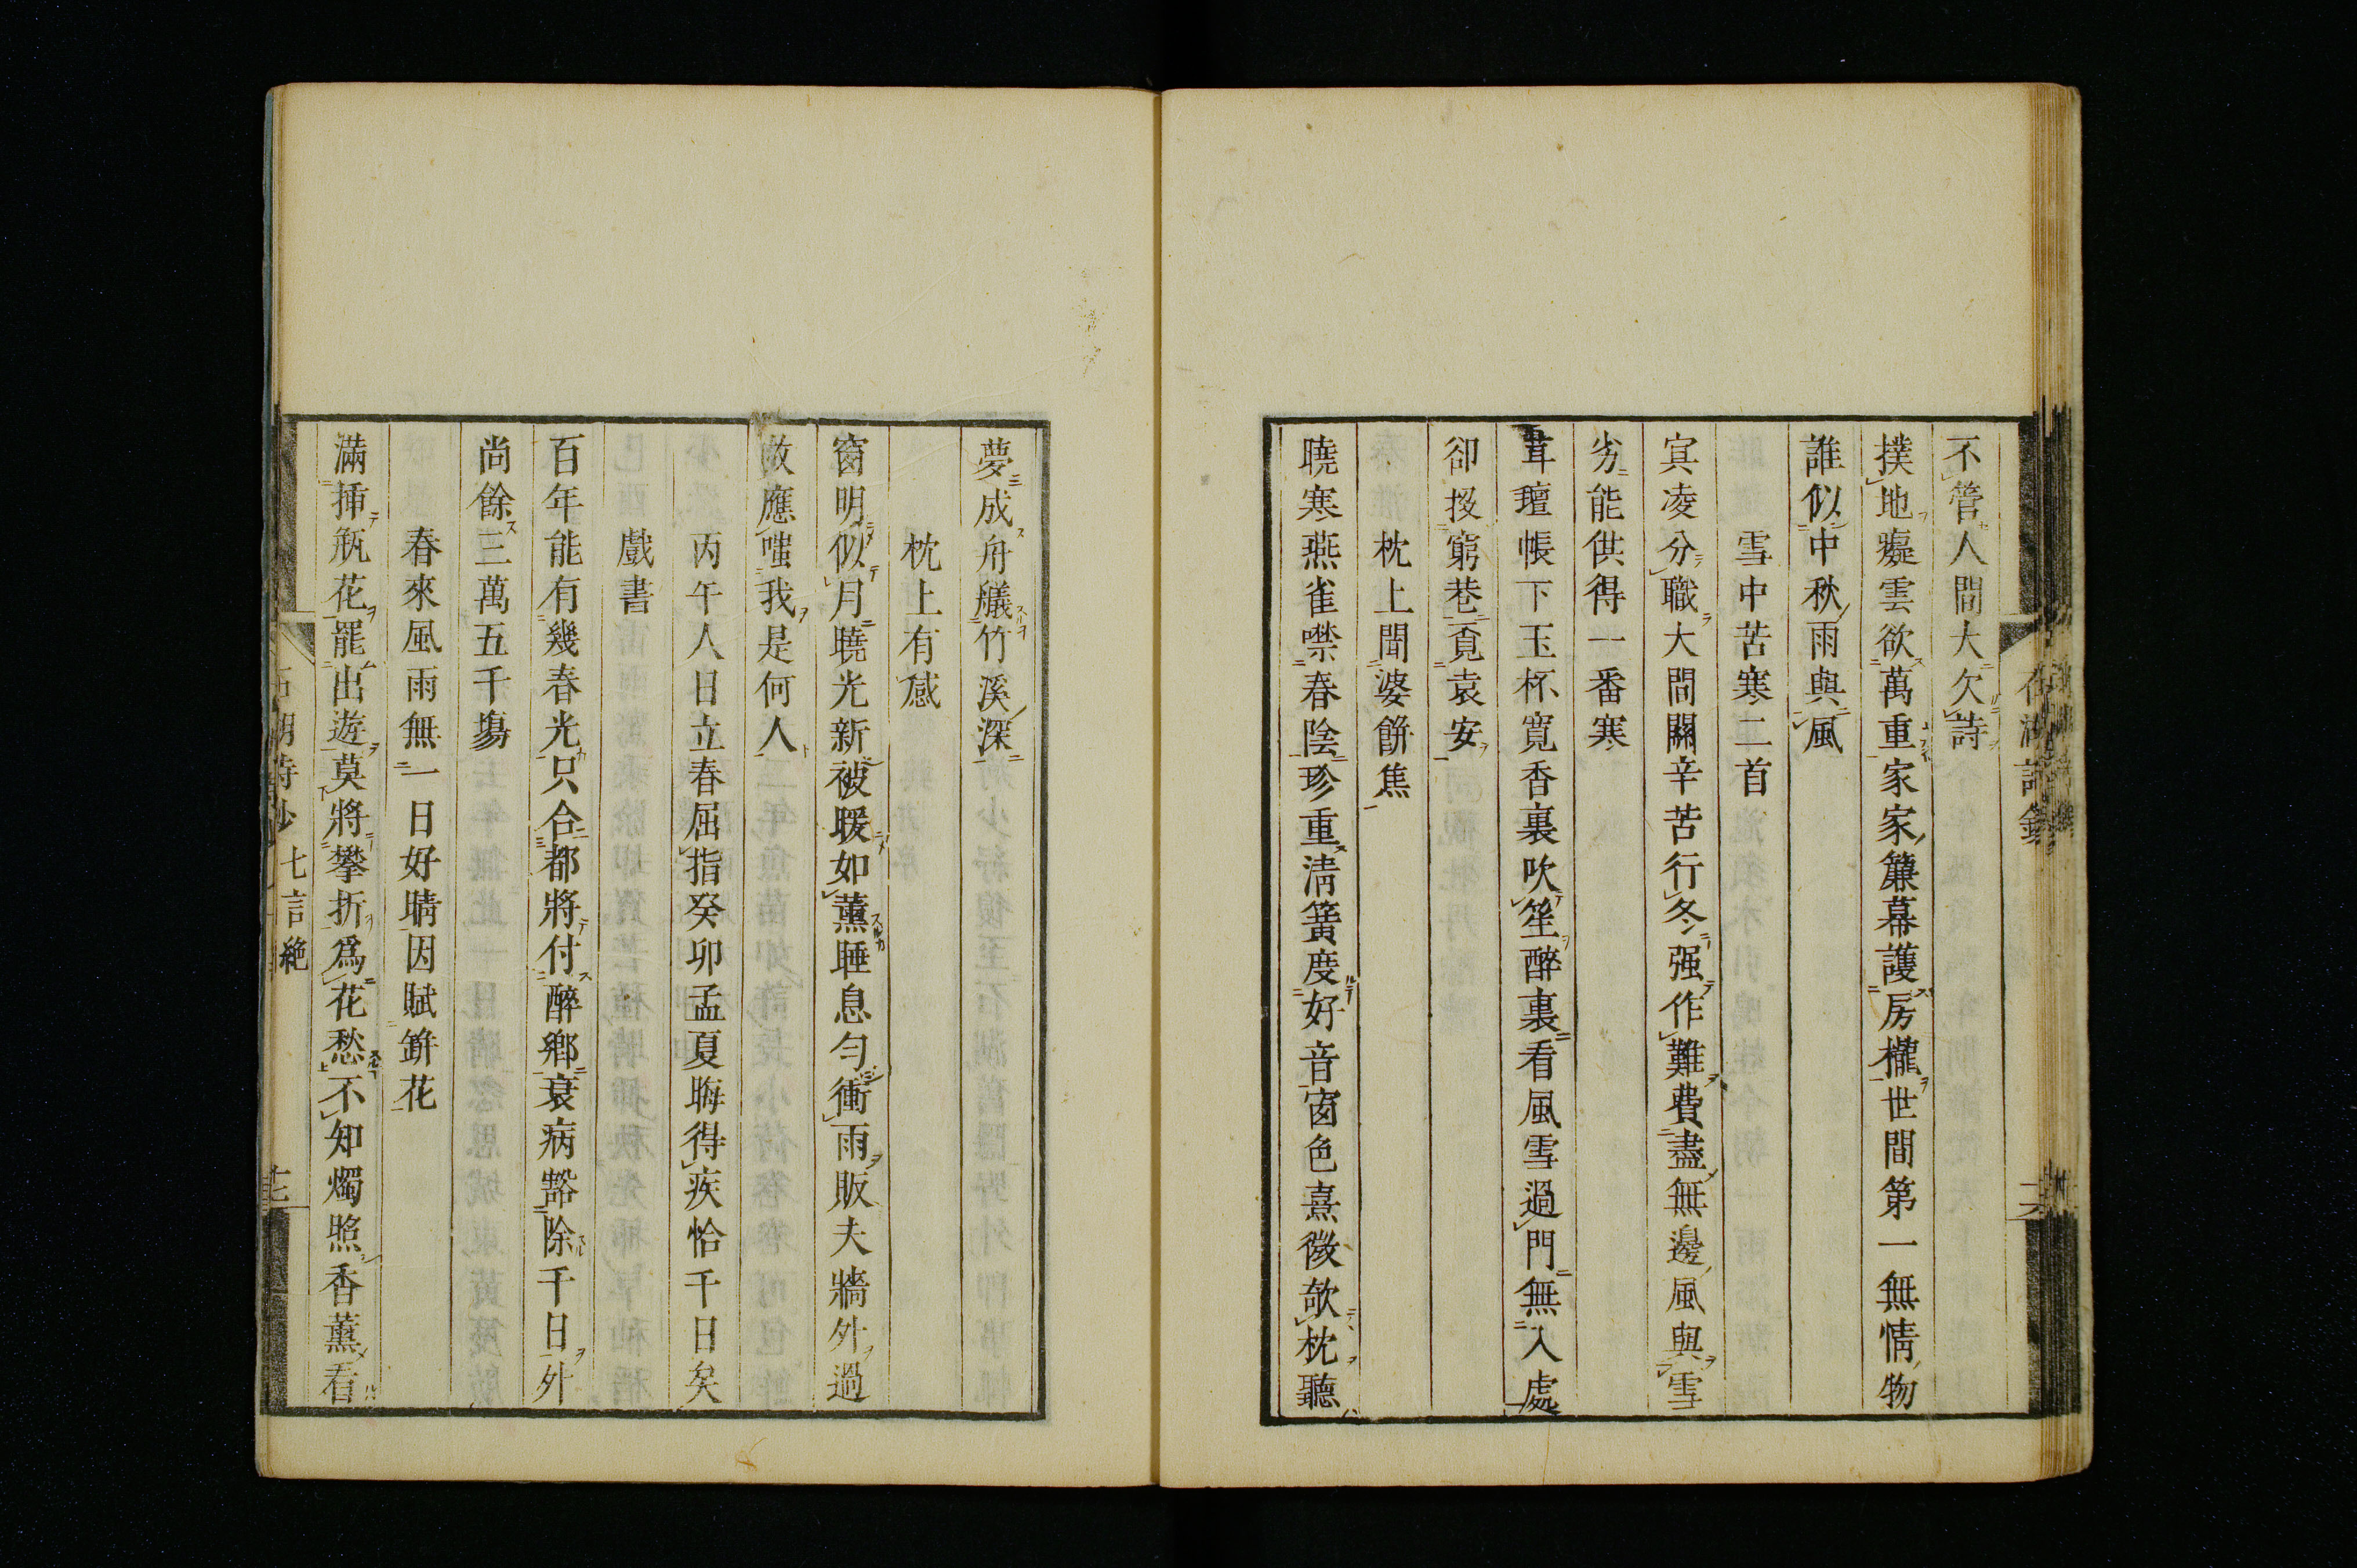 不管人間大欠詩
撲地癡雲欲萬重家家簾幕護房櫳世間第一無情物
誰似中秋雨與風
雪中苦寒二首
寘凌分職大間關辛苦行冬强作難費盡無邊風與雪
劣能供得一番寒
茸氊帳下玉杯寬香裏吹笙醉裏看風雪過門無入處
卻投窮巷覔袁安
枕上聞婆餅焦
曉寒燕雀噤春陰珍重清簧度好音窗色熹微欹枕聽
夢成舟艤竹溪深
枕上有感
窗明似月曉光新被暖如薰睡息勻衝雨販夫牆外過
故應嗤我是何人
丙午人日立春屈指癸卯孟夏晦得疾恰千日矣
戲書
百年能有幾春光只合都將付醉鄉衰病豁除千日外
尚餘三萬五千塲
春來風雨無一日好晴因賦缾花
滿揷瓶花罷出遊莫將攀折爲花愁不知燭照香薰看
七言絶